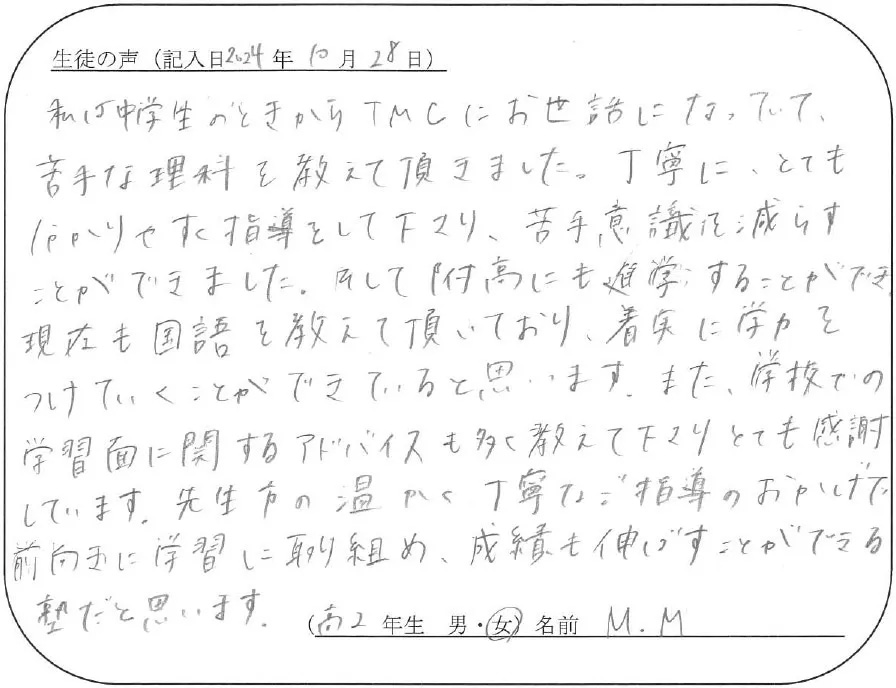 生徒の声（記入日2024年10月28日）
私は中学生のときからTMCにお世話になっていて、
苦手な理科を教えて頂きました。丁寧に、とても
分かりやすく指導をして下さり、苦手意識を減らす
ことができました。そして附高にも進学することができ
現在も国語を教えて頂いており、着実に学力を
つけていくことができていると思います。また、学校での
学習面に関するアドバイスも多く教えて下さりとても感謝
しています。先生方の温かく丁寧なご指導のおかげで
前向きに学習に取り組め、成績も伸ばすことができる
塾だと思います。
（高2年生 男・女）名前 M.M